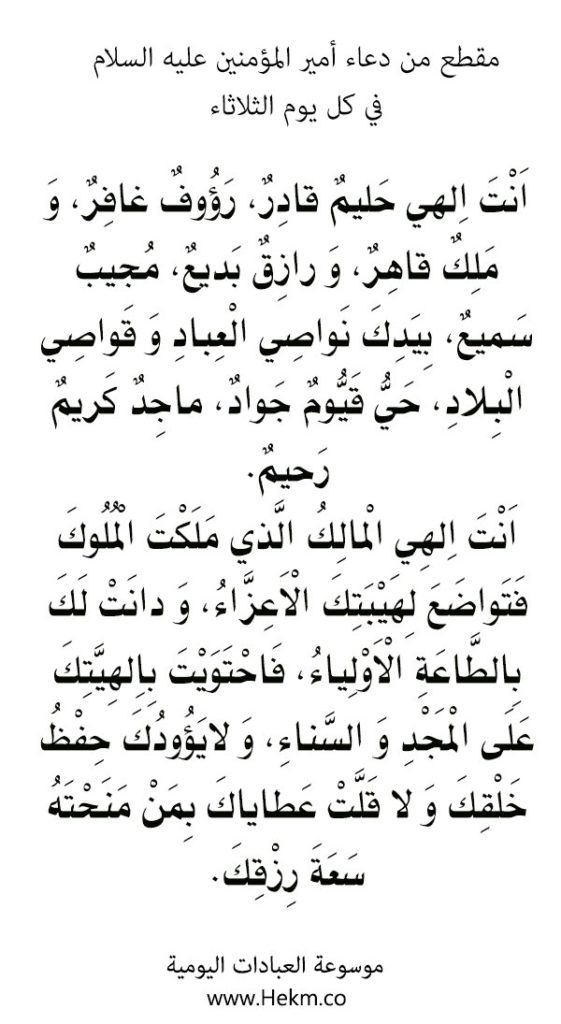 مقطع من دعاء أمير المؤمنين عليه السلام
في كل يوم الثلاثاء
اَنْتَ اِلهي حَليمٌ قادِرٌ، رَؤُوفٌ غافِرٌ، وَ
مَلِكٌ قاهِرٌ، وَ رازِقٌ بَديعٌ، مُجيبٌ
سَميعٌ، بِيَدِكَ نَواصِي الْعِبادِ وَ قَواصِي
الْبِلادِ، حَيٌّ قَيُّومٌ جَوادٌ، ماجِدٌ كَريمٌ
رَحيمٌ.
اَنْتَ اِلهِي الْمالِكُ الَّذي مَلَكْتَ الْمُلُوكَ
فَتَواضَعَ لِهَيْبَتِكَ الْاَعِزَّاءُ، وَ دانَتْ لَكَ
بِالطَّاعَةِ الْاَوْلِياءُ، فَاحْتَوَيْتَ بِاِلهِيَّتِكَ
عَلَى الْمَجْدِ وَ السَّناءِ، وَ لايَؤُودُكَ حِفْظُ
خَلْقِكَ وَ لا قَلَّتْ عَطاياكَ بِمَنْ مَنَحْتَهُ
سَعَةَ رِزْقِكَ.
موسوعة العبادات اليومية
www.Hekm.co